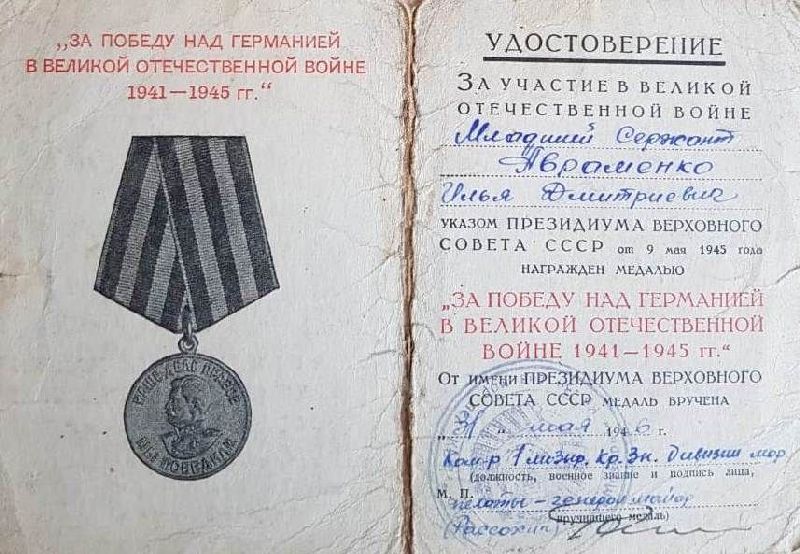 „ЗА ПОБЕДУ НАД ГЕРМАНИЕЙ
В ВЕЛИКОЙ ОТЕЧЕСТВЕННОЙ ВОЙНЕ
1941—1945 гг.“
НАШЕ ДЕЛО ПРАВОЕ
МЫ ПОБЕДИЛИ
УДОСТОВЕРЕНИЕ
ЗА УЧАСТИЕ В ВЕЛИКОЙ
ОТЕЧЕСТВЕННОЙ ВОЙНЕ
Младший Сержант
Авраменко
Илья Дмитриевич
УКАЗОМ ПРЕЗИДИУМА ВЕРХОВНОГО
СОВЕТА СССР от 9 мая 1945 года
НАГРАЖДЕН МЕДАЛЬЮ
„ЗА ПОБЕДУ НАД ГЕРМАНИЕЙ
В ВЕЛИКОЙ ОТЕЧЕСТВЕННОЙ
ВОЙНЕ 1941—1945 гг.“
ОТ ИМЕНИ ПРЕЗИДИУМА ВЕРХОВНОГО
СОВЕТА СССР МЕДАЛЬ ВРУЧЕНА
„31“ мая 1946 г.
Ком-р 1 Кр. Зн. Дивизии мор
(должность, военное звание и подпись лица,
М. П.
пехоты – генерал майор
вручившего медаль)
(Рассохин)